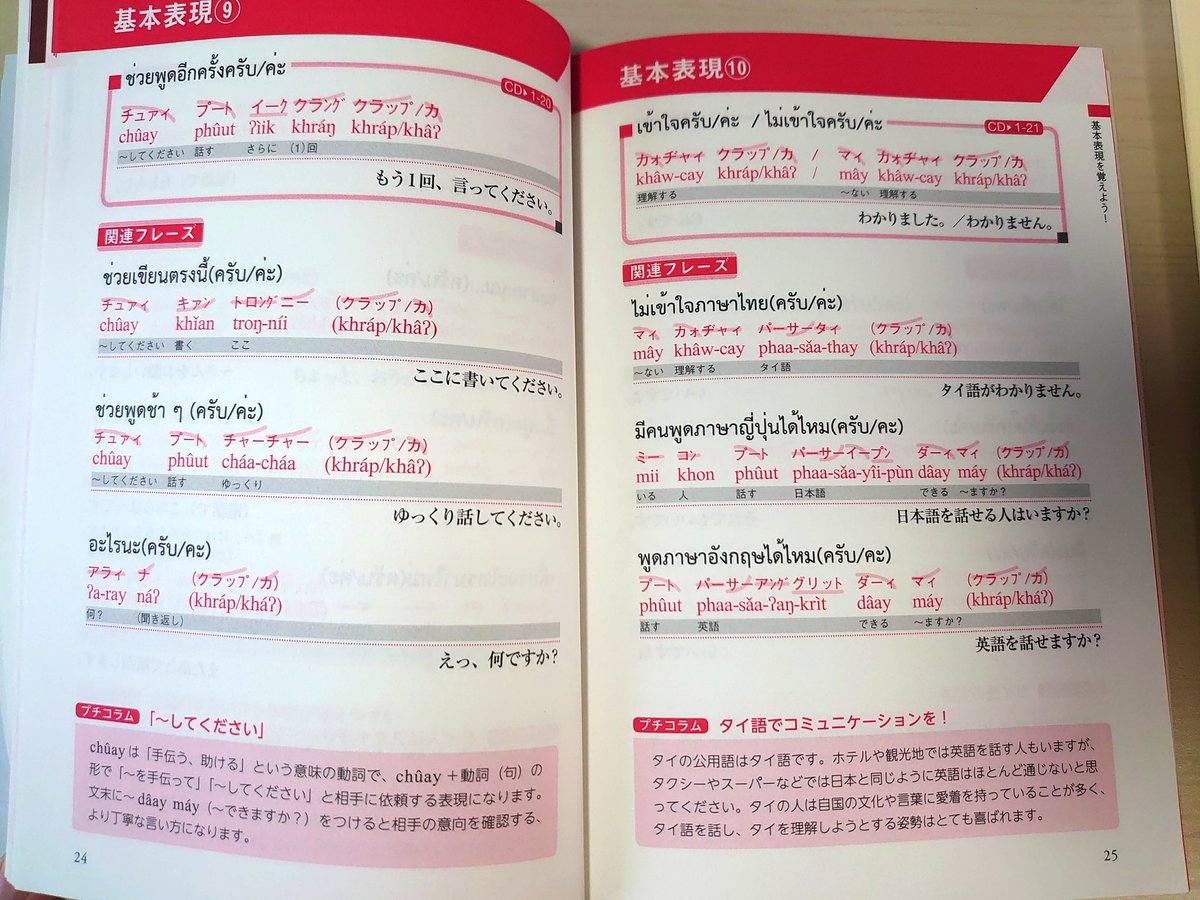 基本表現⑨
ช่วยพูดอีกครั้งครับ/ค่ะ
CD▶1-20
チュアィ プート イーク クラング クラップ/カ
chûay phûut ʔìik khráŋ khráp/khâʔ
〜してください 話す さらに (1)回
もう1回、言ってください。
関連フレーズ
ช่วยเขียนตรงนี้(ครับ/ค่ะ)
チュアィ キアン トロングニー (クラップ/カ)
chûay khǐan troŋ-níi (khráp/khâʔ)
〜してください 書く ここ
ここに書いてください。
ช่วยพูดช้า ๆ (ครับ/ค่ะ)
チュアィ プート チャーチャー (クラップ/カ)
chûay phûut cháa-cháa (khráp/khâʔ)
〜してください 話す ゆっくり
ゆっくり話してください。
อะไรนะ(ครับ/คะ)
アライ ナ (クラップ/カ)
ʔa-ray náʔ (khráp/kháʔ)
何? (聞き返し)
えっ、何ですか?
プチコラム 「〜してください」
chûay は「手伝う、助ける」という意味の動詞で、chûay+動詞(句)の
形で「〜を手伝って」「〜してください」と相手に依頼する表現になります。
文末に〜 dâay máy(〜できますか?)をつけると相手の意向を確認する、
より丁寧な言い方になります。
24
基本表現⑩
เข้าใจครับ/ค่ะ / ไม่เข้าใจครับ/ค่ะ
CD▶1-21
カォヂャイ クラップ/カ / マィ カォヂャイ クラップ/カ
khâw-cay khráp/khâʔ / mây khâw-cay khráp/khâʔ
理解する 〜ない 理解する
わかりました。/わかりません。
関連フレーズ
ไม่เข้าใจภาษาไทย(ครับ/ค่ะ)
マィ カォヂャイ パーサータイ (クラップ/カ)
mây khâw-cay phaa-sǎa-thay (khráp/khâʔ)
〜ない 理解する タイ語
タイ語がわかりません。
มีคนพูดภาษาญี่ปุ่นได้ไหม(ครับ/คะ)
ミー コン プート パーサーイープン ダーィ マイ (クラップ/カ)
mii khon phûut phaa-sǎa-yîi-pùn dâay máy (khráp/kháʔ)
いる 人 話す 日本語 できる 〜ますか?
日本語を話せる人はいますか?
พูดภาษาอังกฤษได้ไหม(ครับ/คะ)
プート パーサーアング グリット ダーィ マイ (クラップ/カ)
phûut phaa-sǎa-ʔaŋ-krìt dâay máy (khráp/kháʔ)
話す 英語 できる 〜ますか?
英語を話せますか?
プチコラム タイ語でコミュニケーションを!
タイの公用語はタイ語です。ホテルや観光地では英語を話す人もいますが、
タクシーやスーパーなどでは日本と同じように英語はほとんど通じないと思
ってください。タイの人は自国の文化や言葉に愛着を持っていることが多く、
タイ語を話し、タイを理解しようとする姿勢はとても喜ばれます。
25
基本表現を覚えよう!